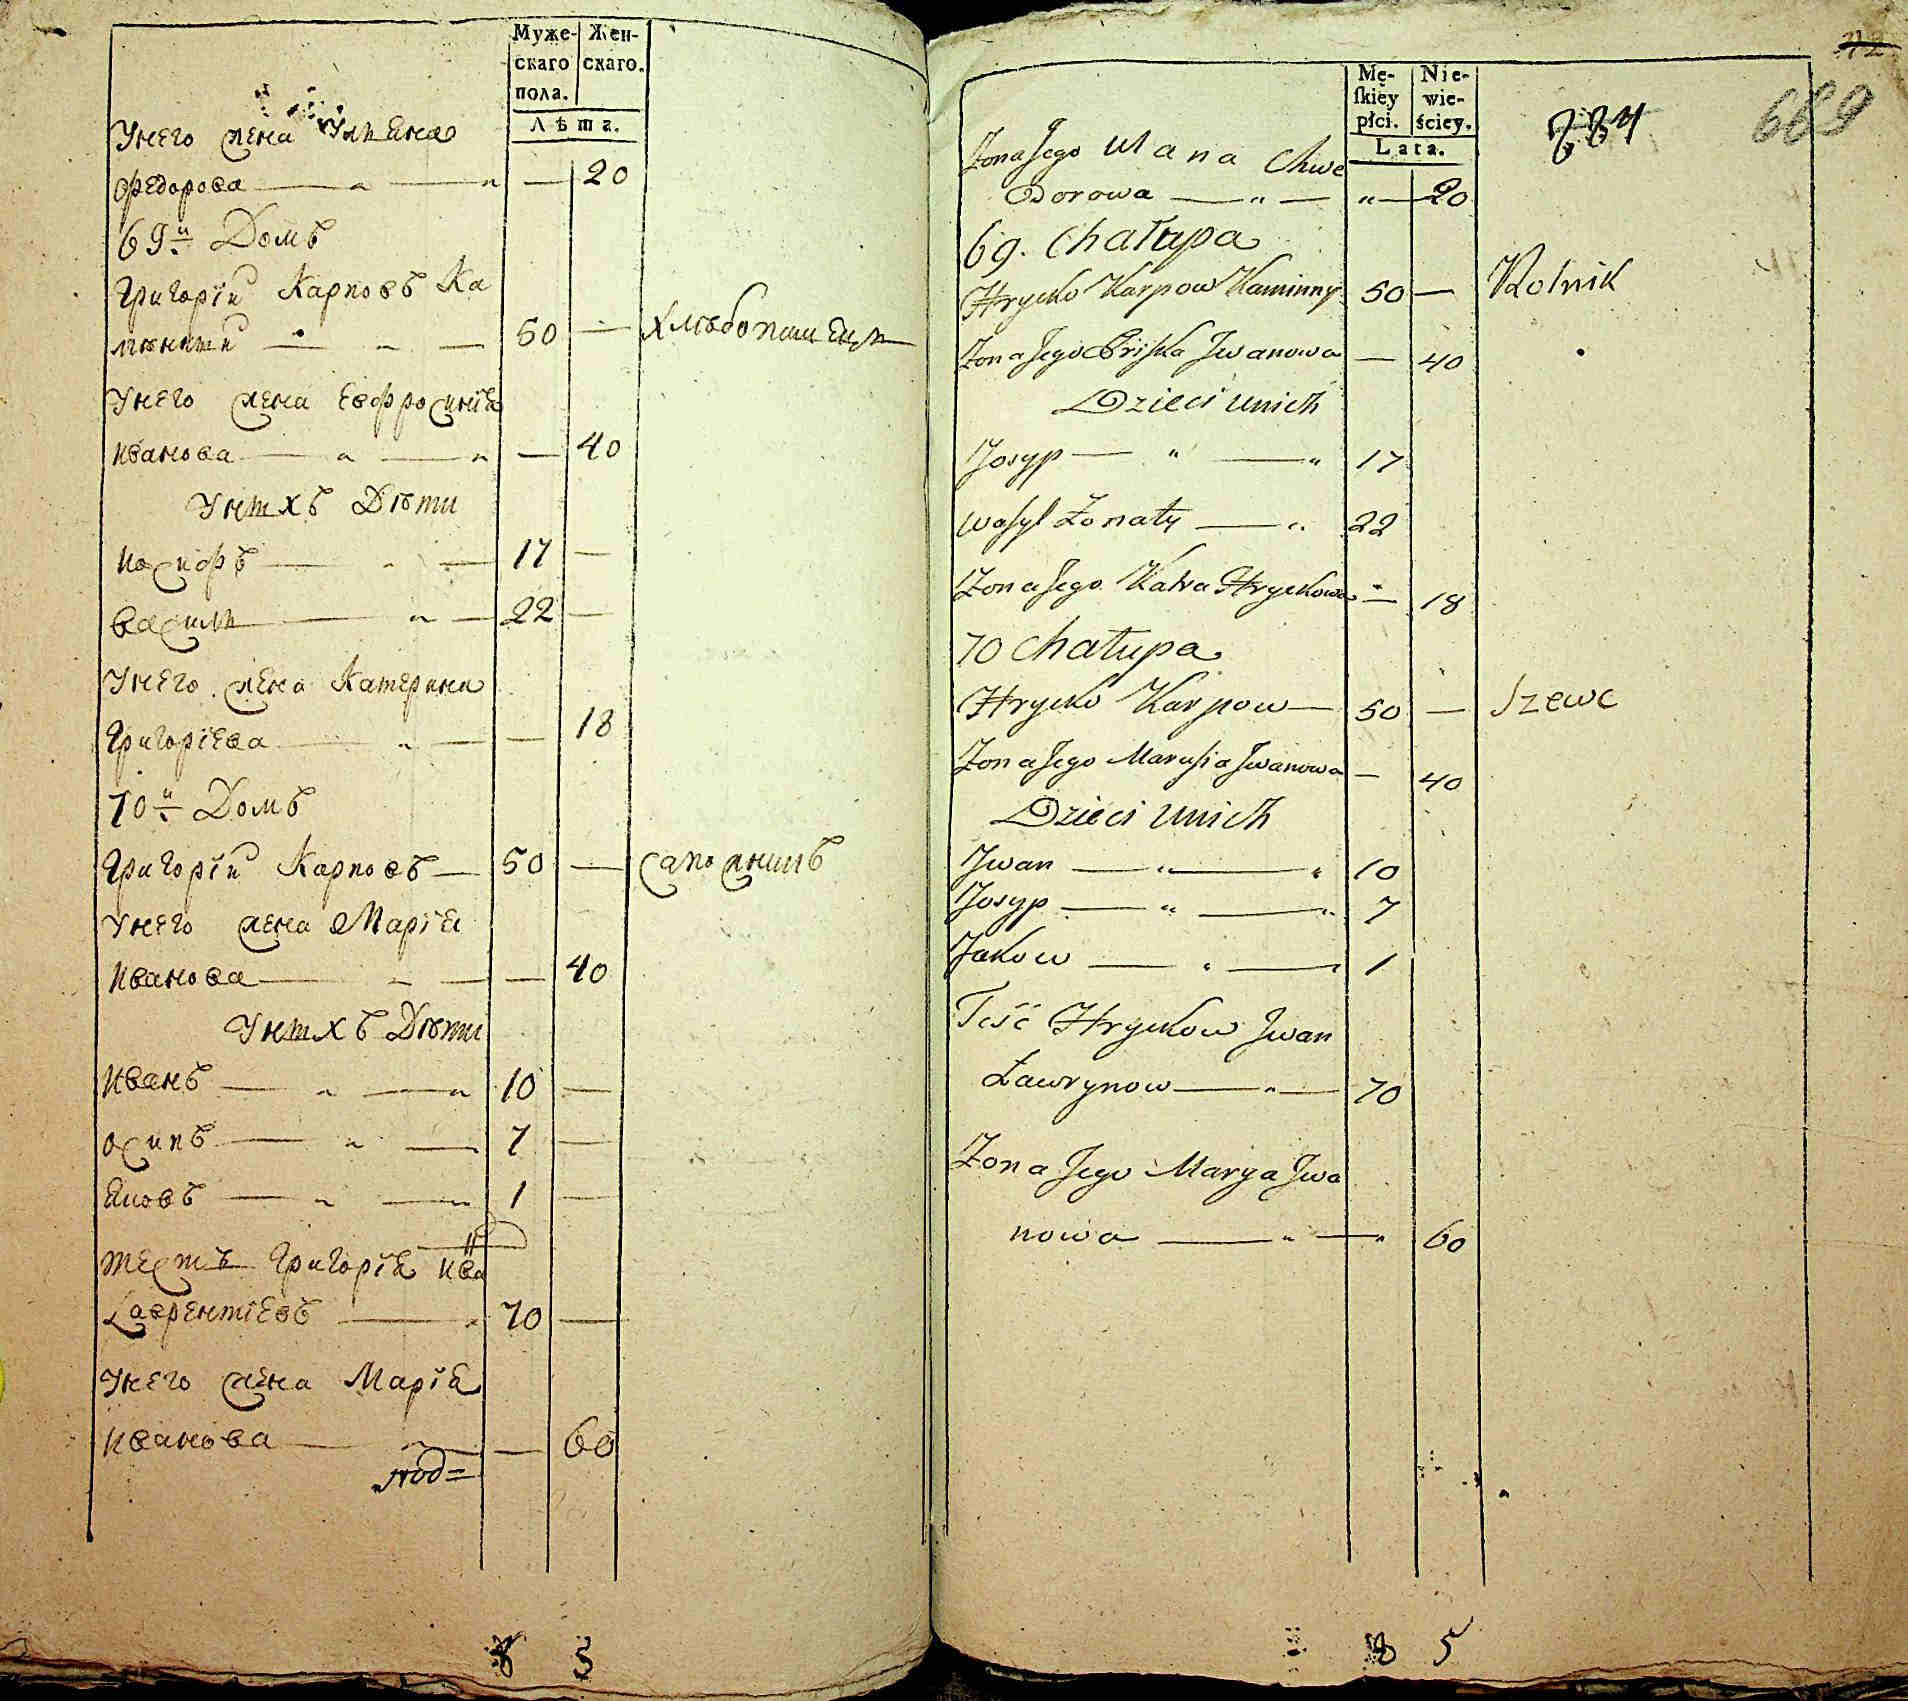 Муже-
скаго
пола.
Жен-
скаго.
Лѣта.
Унего жена Улияна
Федорова — „ — „ — 20
69й Домъ
Григорїй Карповъ Ка
мѣнный — „ — 50 — хлѣбопашецъ
Унего жена Евфросинїя
Иванова — „ — „ — 40
Унихъ Дѣти
Иосифъ — „ — 17 —
Василий — „ — 22 —
Унего жена Катерина
Григорїева — „ — — 18
70й Домъ
Григорїй Карповъ — 50 — сапожникъ
Унего жена Марїя
Иванова — „ — — 40
Унихъ Дѣти
Иванъ — „ — „ 10 —
Осипъ — „ — 7 —
Яковъ — „ — „ 1 —
тесть Григорїя Ива
Лаврентїевъ — „ 70 —
Унего жена Марїя
Иванова — „ — — 60
8 5
Mę-
skiey
płci.
Nie-
wie-
ściey.
Lata.
42
669
Żona Jego Ulana Chwe
Dorowa — „ — „ — 20
69. Chałupa
Hrycko Karpow Kaminny 50 — Rolnik
Żona Jego Priska Iwanowa — 40
Dzieci unich
Josyp — „ — „ 17
Wasyl Żonaty — „ 22
Żona Jego Katra Hryckowa — 18
70 Chałupa
Hrycko Karpow — 50 — Szewc
Żona Jego Marusia Iwanowa — 40
Dzieci unich
Iwan — „ — „ 10
Josyp — „ — „ 7
Jakow — „ — 1
Teść Hryckow Iwan
Ławrynow — „ — 70
Żona Jego Marya Iwa
nowa — „ — „ 60
8 5